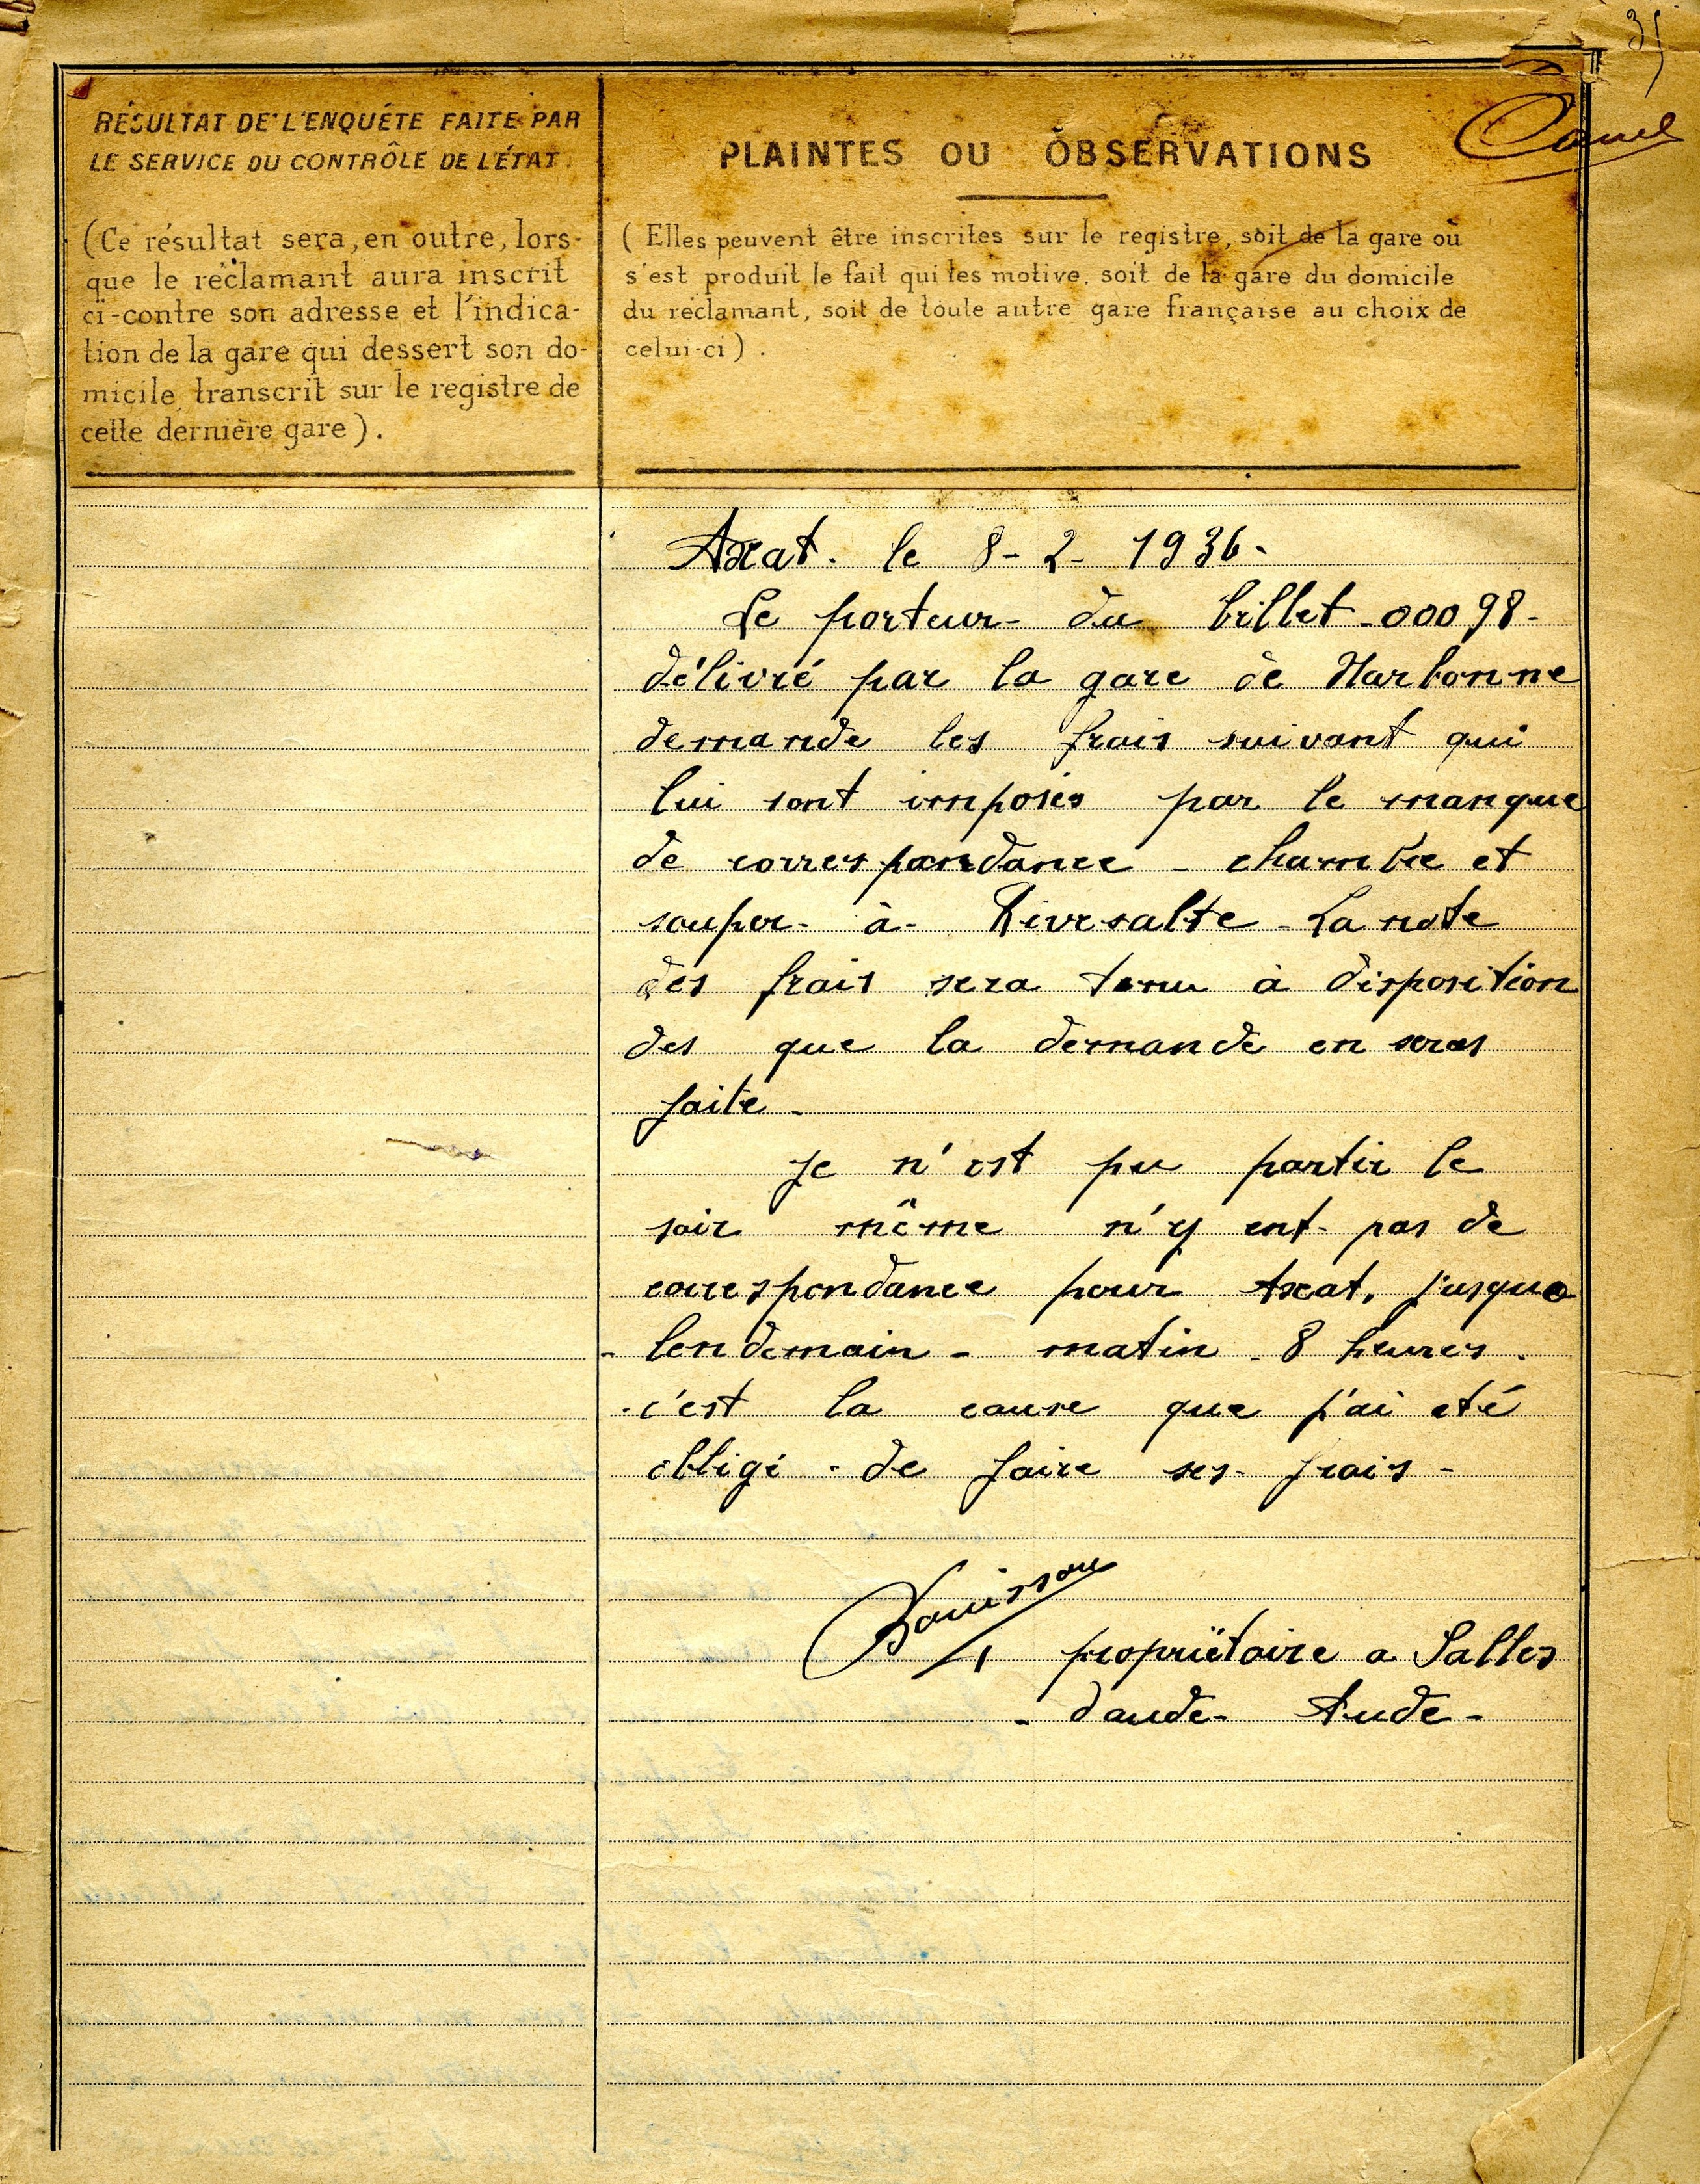 35
RÉSULTAT DE L'ENQUÊTE FAITE PAR
LE SERVICE DU CONTRÔLE DE L'ÉTAT
(Ce résultat sera, en outre, lors-
que le réclamant aura inscrit
ci-contre son adresse et l'indica-
tion de la gare qui dessert son do-
micile, transcrit sur le registre de
cette dernière gare).
PLAINTES OU OBSERVATIONS
(Elles peuvent être inscrites sur le registre, soit de la gare où
s'est produit le fait qui les motive, soit de la gare du domicile
du réclamant, soit de toute autre gare française au choix de
celui-ci).
Axat. le 8-2-1936-
Le porteur- du billet-00098-
délivré par la gare de Narbonne
demande les frais suivant qui
lui sont imposés par le manque
de correspondance - chambre et
souper- à- Rivesalte - La note
des frais sera tenu à disposition
des que la demande en seras
faite -
Je n'est pu partir le
soir même n'y ent- pas de
correspondance pour Axat, jusqua
- lendemain - matin - 8 heures.
c'est la cause que j'ai eté
obligé - de faire ses- frais -
propriëtaire a Salles
- daude- Aude -